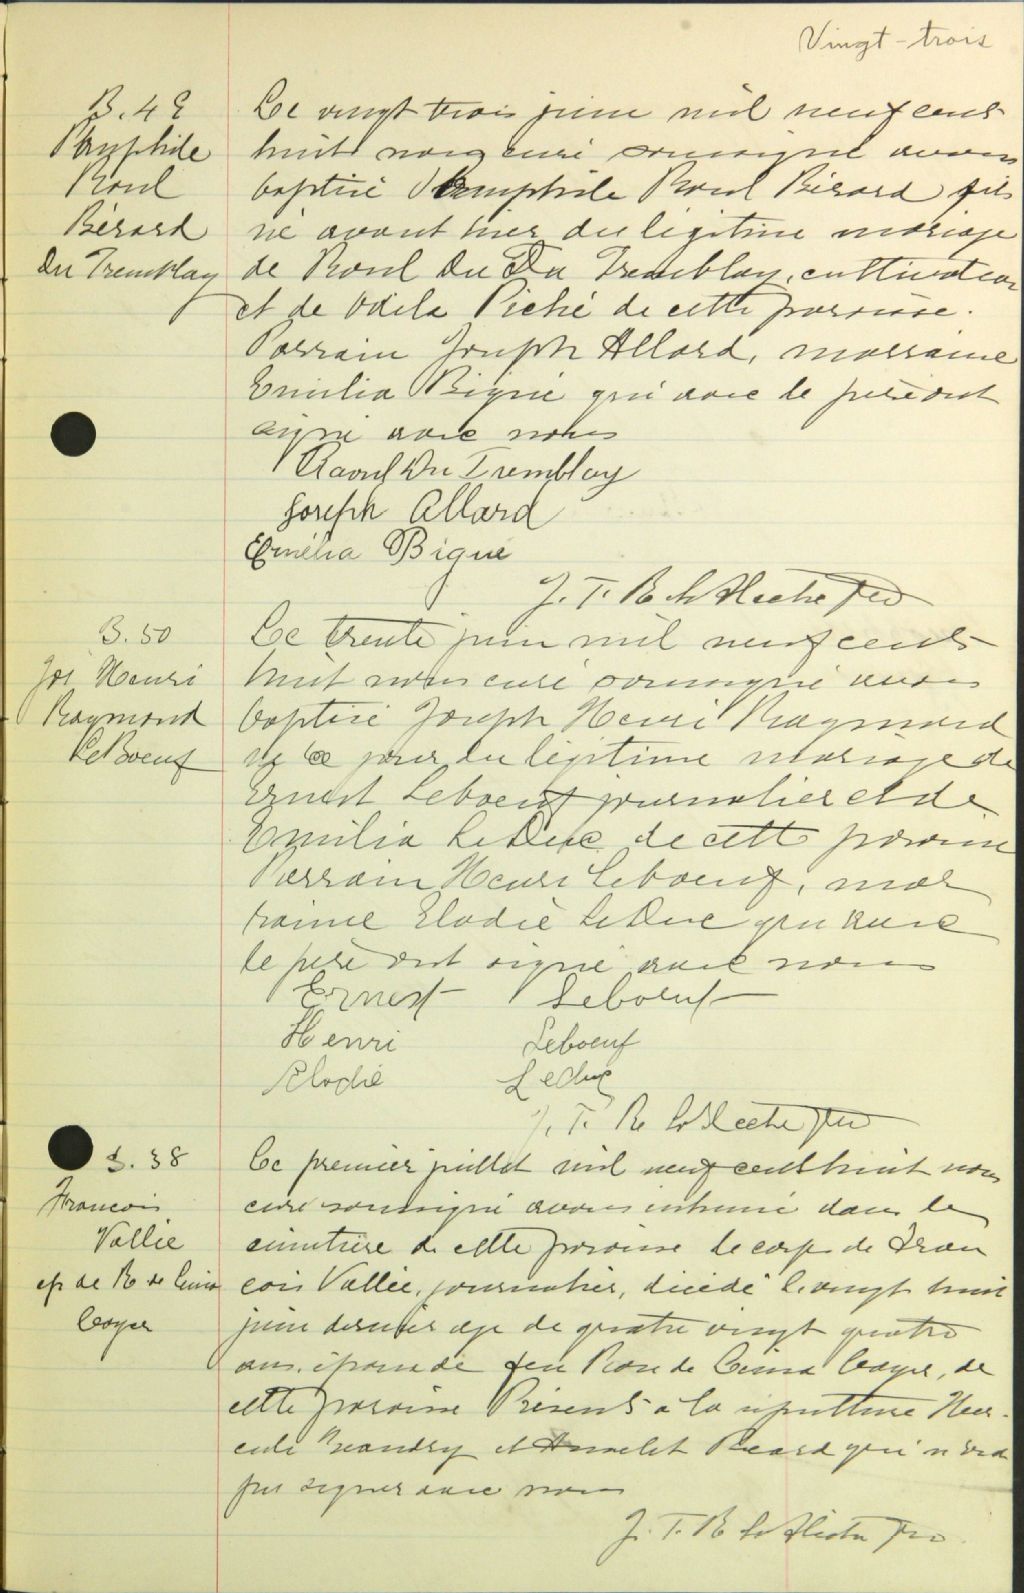 Vingt-trois
B. 49
Pamphile
Raoul
Bérard
Du Tremblay
Le vingt trois juin mil neuf cent
huit nous curé soussigné avons
baptisé Pamphile Raoul Bérard fils
né avant hier du légitime mariage
de Raoul Du Tremblay, cultivateur
et de Odila Piché de cette paroisse.
Parrain Joseph Allard, marraine
Emilia Bigué qui avec le père ont
signé avec nous
Raoul Du Tremblay
Joseph Allard
Emélia Bigué
J. T. R. Ptre
B. 50
Jos Henri
Raymond
LeBoeuf
Le trente juin mil neuf cent
huit nous curé soussigné avons
baptisé Joseph Henri Raymond
né ce jour du légitime mariage de
Ernest Leboeuf journalier et de
Emilia LeDuc de cette paroisse
Parrain Henri Leboeuf, mar
raine Elodie LeDuc qui avec
le père ont signé avec nous
Ernest Leboeuf
Henri Leboeuf
Elodie Leduc
J. T. R. Ptre
S. 38
Francois
Vallée
ep de R de Lima
Coyer
Le premier juillet mil neuf cent huit nous
curé soussigné avons inhumé dans le
cimetière de cette paroisse le corps de Fran
cois Vallée, journalier, décédé le vingt huit
juin dernier age de quatre vingt quatre
ans, époux de feu Rose de Lima Coyer, de
cette paroisse Présents à la sépulture Her-
cule Beaudry et Hamelet Ricard qui n'ont
pu signer avec nous
J. T. R. Ptre